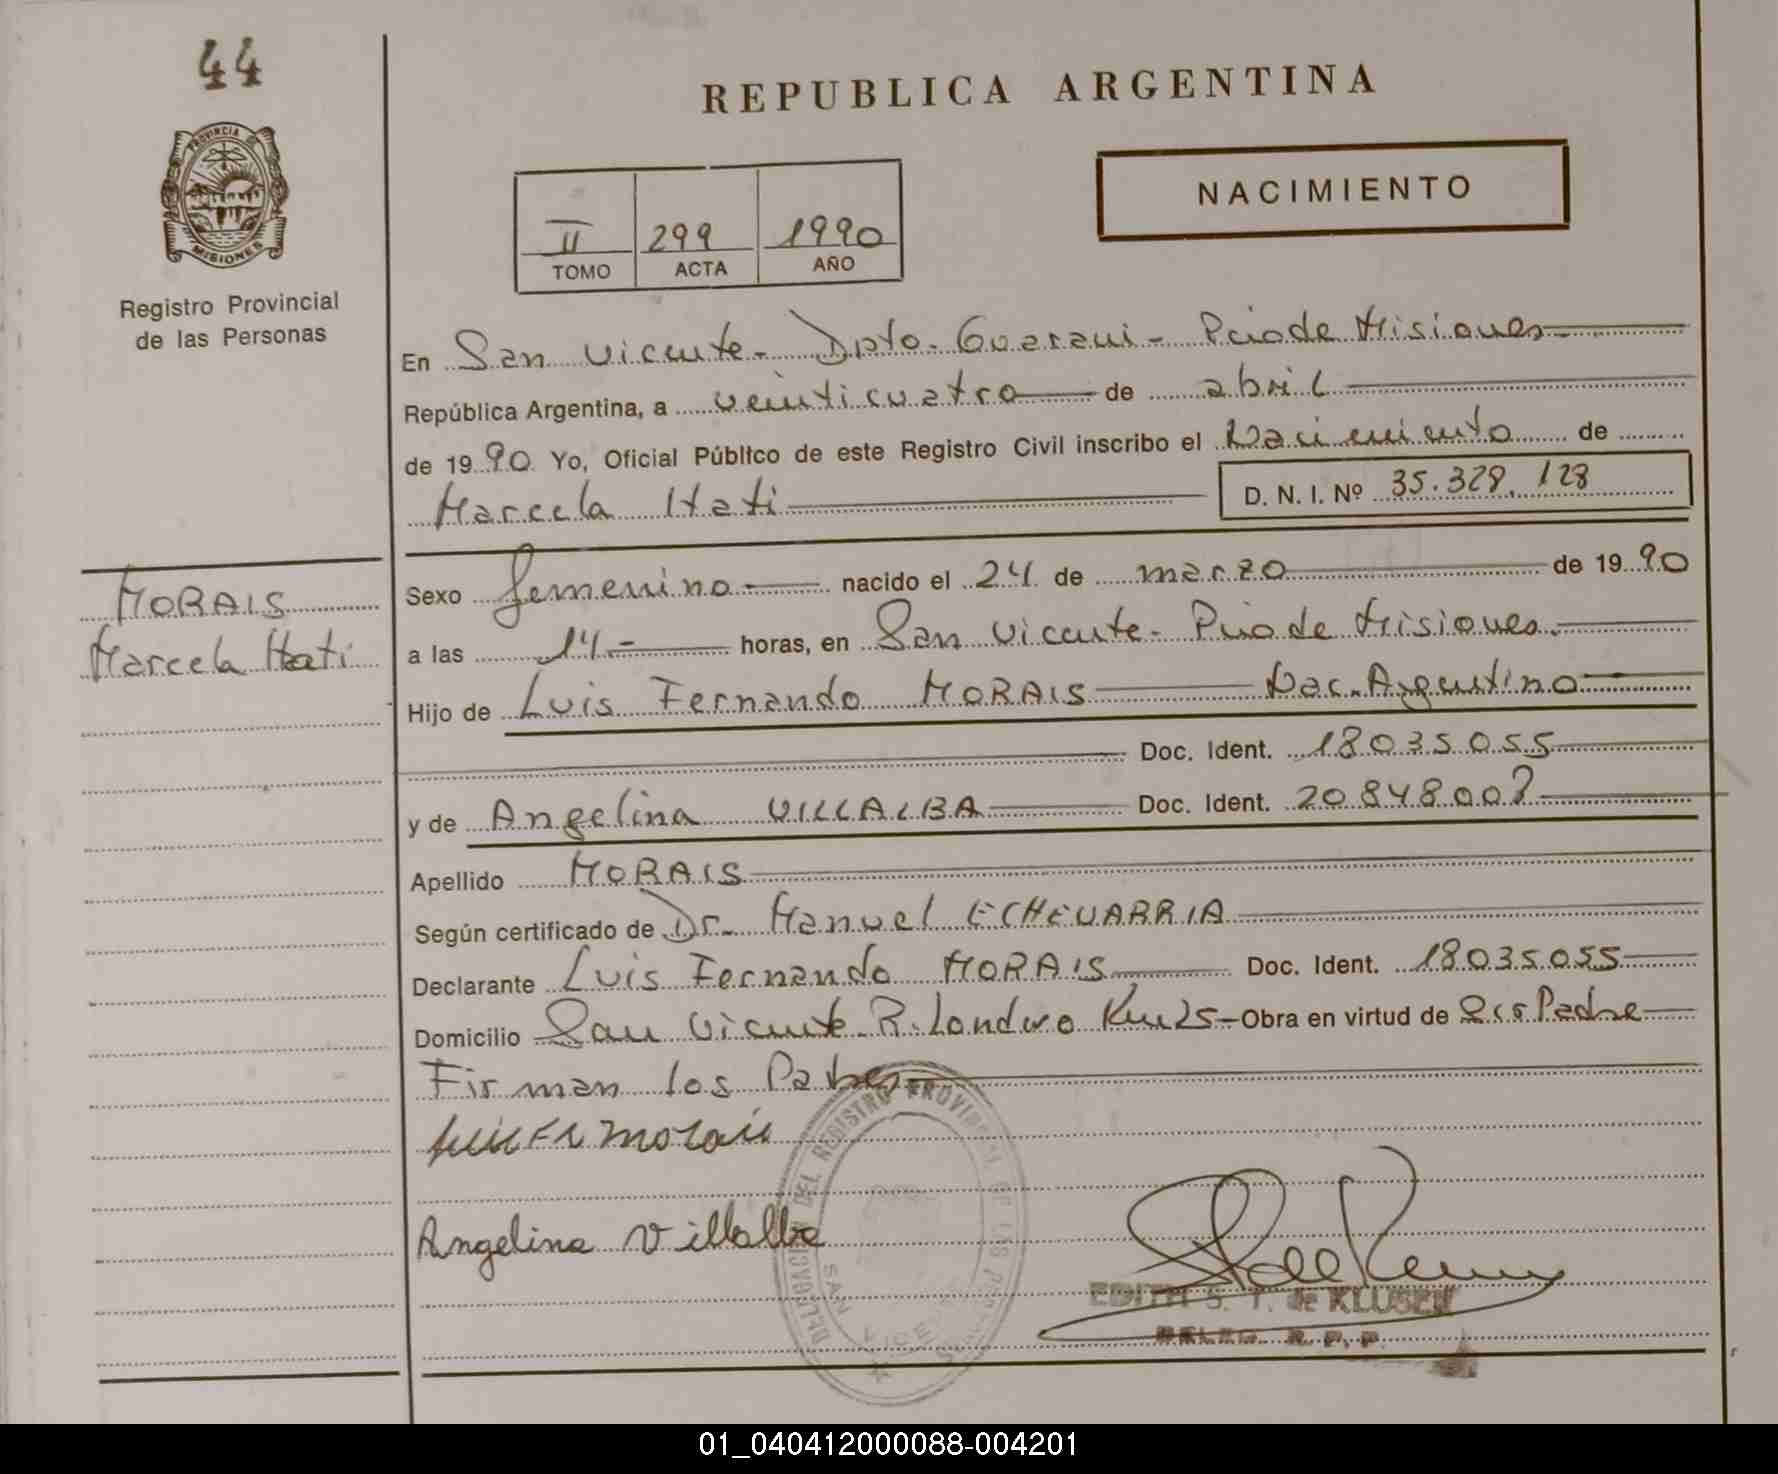 44
PROVINCIA DE
MISIONES
Registro Provincial
de las Personas
REPUBLICA ARGENTINA
NACIMIENTO
II 299 1990
TOMO ACTA AÑO
En San Vicente - Dpto. Guarani - Pciade Misiones
República Argentina, a veinticuatro de abril
de 1990 Yo, Oficial Público de este Registro Civil inscribo el Nacimiento de
Marcela Itati D. N. I. Nº 35.329.128
MORAIS
Marcela Itati
Sexo femenino nacido el 24 de marzo de 1990
a las 14 - horas, en San Vicente - Pciade Misiones.
Hijo de Luis Fernando MORAIS Nac. Argentino
Doc. Ident. 18035055
y de Angelina VILLALBA Doc. Ident. 20848008
Apellido MORAIS
Según certificado de Dr. Manuel ECHEVARRIA
Declarante Luis Fernando MORAIS Doc. Ident. 18035055
Domicilio San Vicente R. Landero Km 25 - Obra en virtud de Padre
Firman los Padres
Morais
Angelina Villalba
DELEGACION DEL REGISTRO PROVINCIAL DE LAS PERSONAS
SAN VICENTE
EDITH S. T. de KLUSEN
DELEG. R. P. P.
01_040412000088-004201